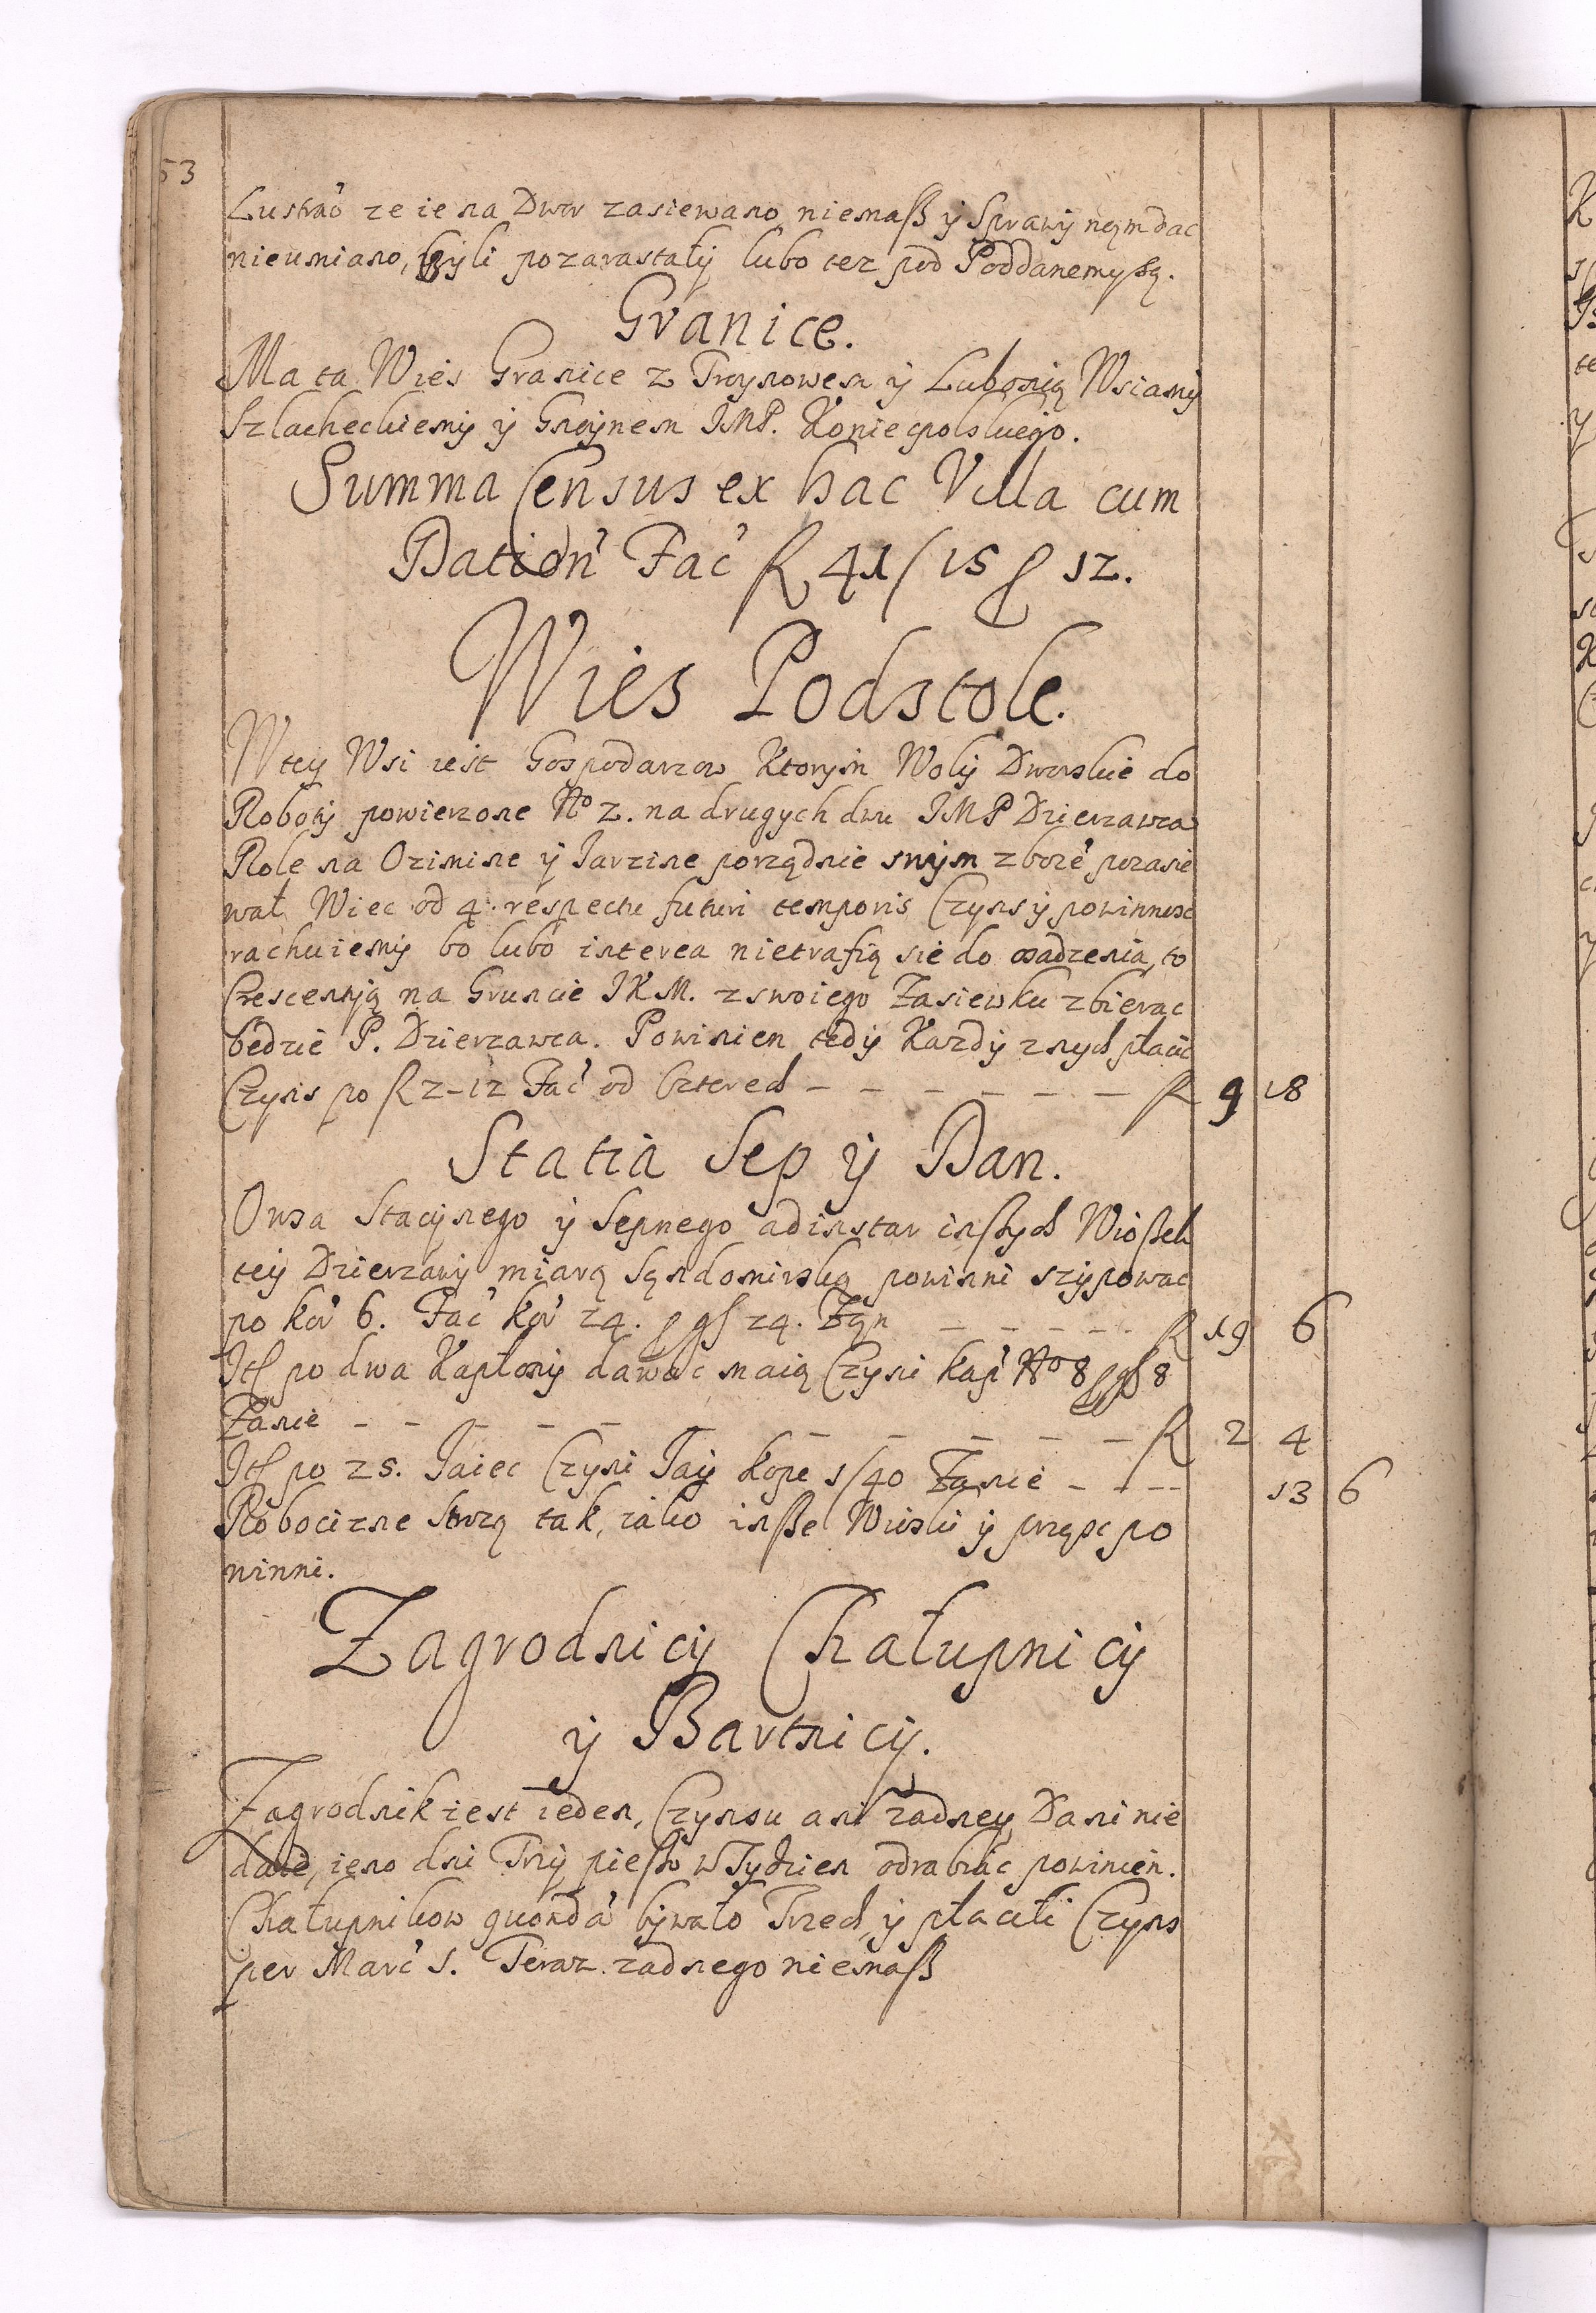 53
Lustraó ze ie na Dwor zasiewano niemaß ÿ Sprawÿ nąm dac
nieumiano, bÿli pozarastałÿ lubo tez pod Poddanemy są.
Granice.
Ma ta Wies Granice z Troynowem ÿ Lubonią Wsiamÿ
Szlacheckiemÿ ÿ Gnoÿnem JMP. Koniecpolskiego.
Summa Census ex hac Villa cum
Dation' Fac' f 41/15 12.
Wies Podstole.
W tey Wsi iest Gospodarzow Ktorÿm Wolÿ Dworskie do
Robotÿ powierzone No 2. na drugych dwu JMP Dzierzawca
Role na Ozimine ÿ Jarzine porządnie swÿm zboze' pozasie
wał Wiec od 4. respectu futuri temporis Czyns ÿ powinnosc
rachuiemÿ bo lubo interea nietrafią sie do osadzenia, to
Crescentÿą na Gruncie JKM. z swoiego Zasiewku zbierac
bedzie P. Dzierzawca. Powinien tedÿ Kazdÿ znych płacic
Czyns po f 2-12 Fac' od Cztered - - - - - - f 9 18
Statia Sep ÿ Dan.
Owsa Stacÿnego ÿ Sepnego adinstar inßych Wioßek
teÿ Dzierzawÿ miarą Sąndomirską powinni szÿpowac
po kor' 6. Fac' kor' 24. gs 24. Fąn - - - - - f 19 6
It po dwa Kapłonÿ dawac maią Czyni kap' No 8 gs 8
Facie - - - - - - - - - - f 2 4
It po 25. Jaiec Czyni Jaÿ kope 1/40 Facie - - - - 13 6
Robocizne tak, iako inße Wioski ÿ prząsc po
winni.
Zagrodnicÿ Chałupnicÿ
ÿ Bartnicÿ.
Zagrodnik iest ieden, Czynsu ani zadneÿ Dani nie
daie, ieno dni Trzÿ pießo w Tydzien odrabiac powinien.
Chałupnikow bÿwało Trzech, ÿ płacili Czyns
per Marc' 1. Teraz zadnego niemaß